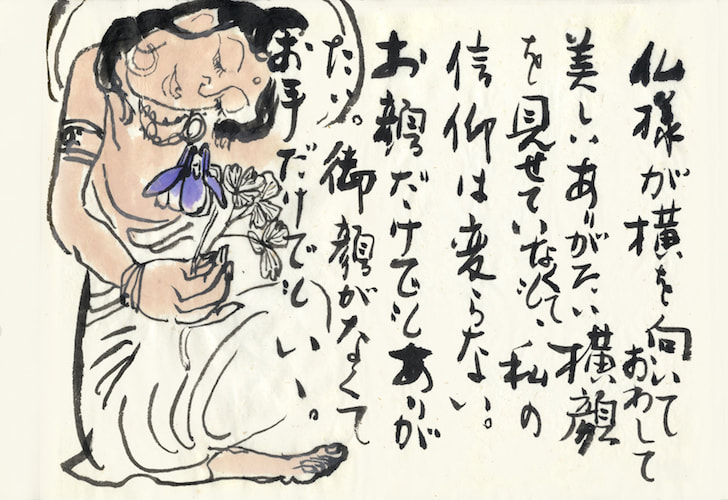 仏様が横を向いておわして
美しいありがたい横顔
を見せていなくても、私の
信仰は変らない。
お顔だけでもありが
たい。御顔がなくて
お手だけでもいい。